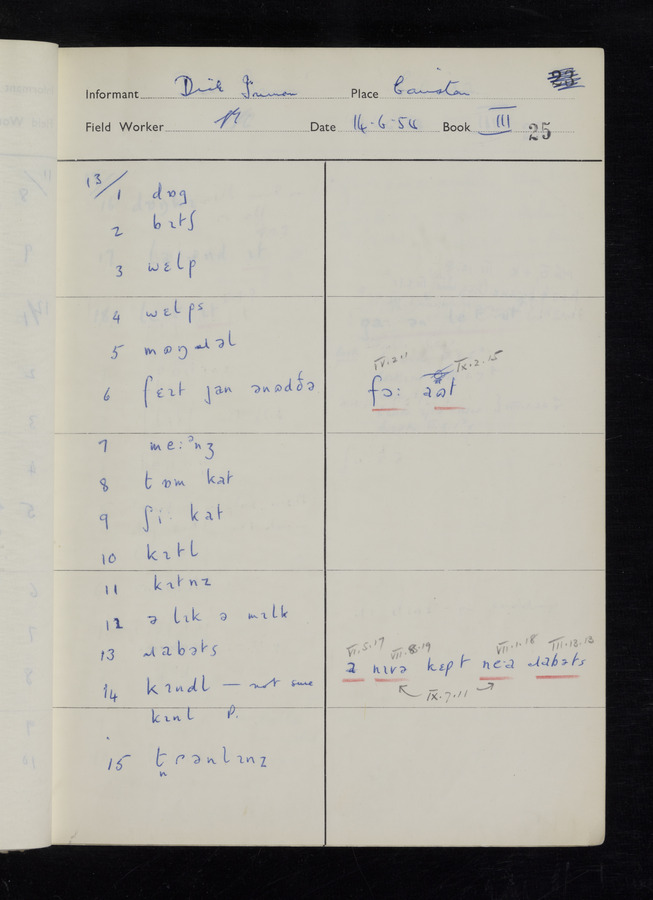 Informant Dick Place Cawston
Field Worker Date 14-6-56 Book III 25
13/1 dɒg
2 bɪtʃ
3 wɛlp
4 wɛlps
5 mɒŋɡɹəl
IV.2.1 IX.2.15
6 jan fə:
7 me:ᵊnʒ
8 tɒm kat
9 ʃi: kat
10 kɪtl
11 kɪtnz
12 ə lɪk ə mɪlk
13 ɹabəts
VI.5.17 VII.8.19 VII.1.18 III.13.13
nɪvə kɛpt ɹabəts
14 kɪndl — not sure
IX.7.11
kɪnl P.
15